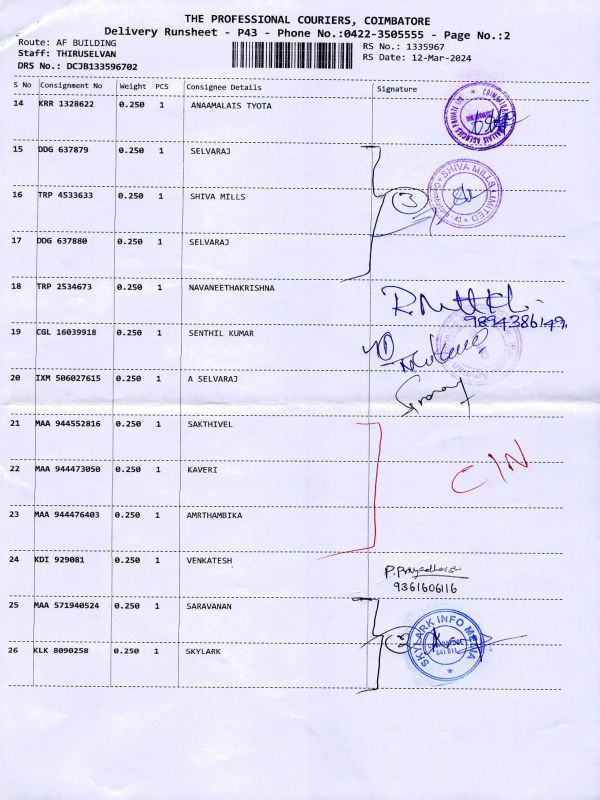 THE PROFESSIONAL COURIERS, COIMBATORE
Delivery Runsheet - P43 - Phone No.:0422-3505555 - Page No.:2
Route: AF BUILDING
RS No.: 1335967
Staff: THIRUSELVAN
RS Date: 12-Mar-2024
DRS No.: DCJB133596702
S No Consignment No Weight PCS Consignee Details Signature
14 KRR 1328622 0.250 1 ANAAMALAIS TYOTA
15 DDG 637879 0.250 1 SELVARAJ
16 TRP 4533633 0.250 1 SHIVA MILLS
3
SHIVA MILLS LIMITED
17 DDG 637880 0.250 1 SELVARAJ
18 TRP 2534673 0.250 1 NAVANEETHAKRISHNA
9894386149
19 CGL 16039918 0.250 1 SENTHIL KUMAR
20 IXM 506027615 0.250 1 A SELVARAJ
21 MAA 944552816 0.250 1 SAKTHIVEL
22 MAA 944473050 0.250 1 KAVERI
C/N
23 MAA 944476403 0.250 1 AMRTHAMBIKA
24 KDI 929081 0.250 1 VENKATESH
9361606116
25 MAA 571940524 0.250 1 SARAVANAN
26 KLK 8090258 0.250 1 SKYLARK
SKYLARK INFO MEDIA